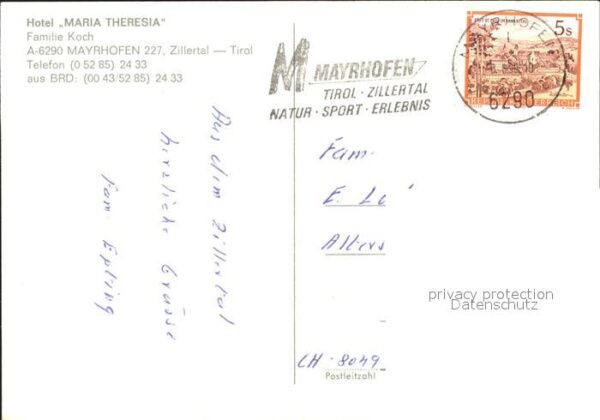 Hotel „MARIA THERESIA"
Familie Koch
A-6290 MAYRHOFEN 227, Zillertal — Tirol
Telefon (0 52 85) 24 33
aus BRD: (00 43/52 85) 24 33
M MAYRHOFEN
TIROL · ZILLERTAL
NATUR · SPORT · ERLEBNIS
MAYRHOFEN
6290
5 S
REPUBLIK ÖSTERREICH
Aus dem Zillertal
herzliche Grüsse
Fam
Fam.
E.
privacy protection
Datenschutz
CH-8049
Postleitzahl